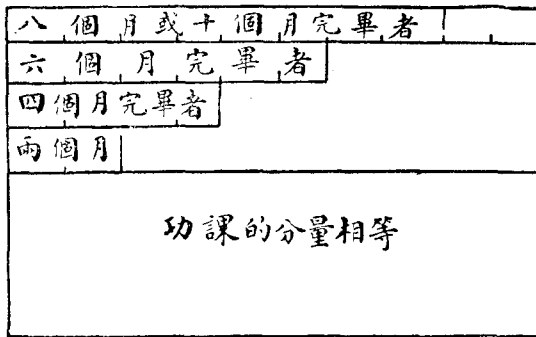 八個月或十個月完畢者
六個月完畢者
四個月完畢者
兩個月
功課的分量相等